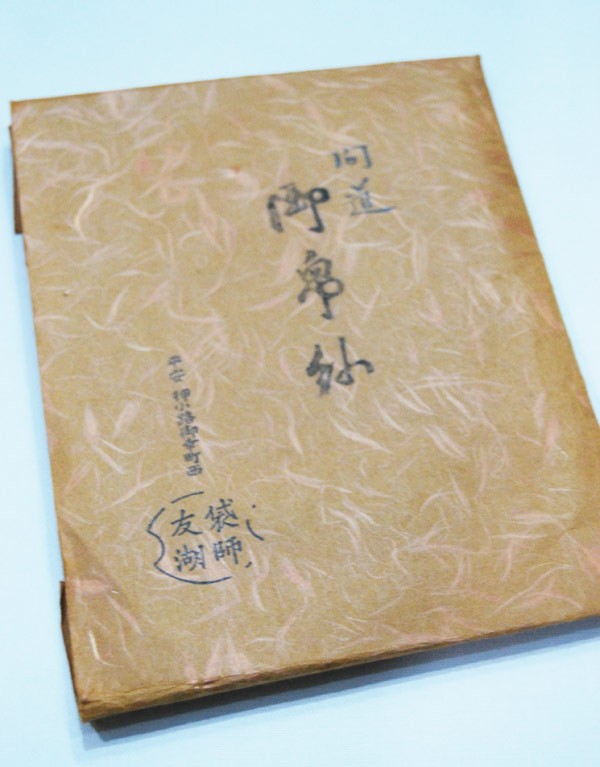 間道
御帛紗
平安 押小路御幸町西
袋師
友湖